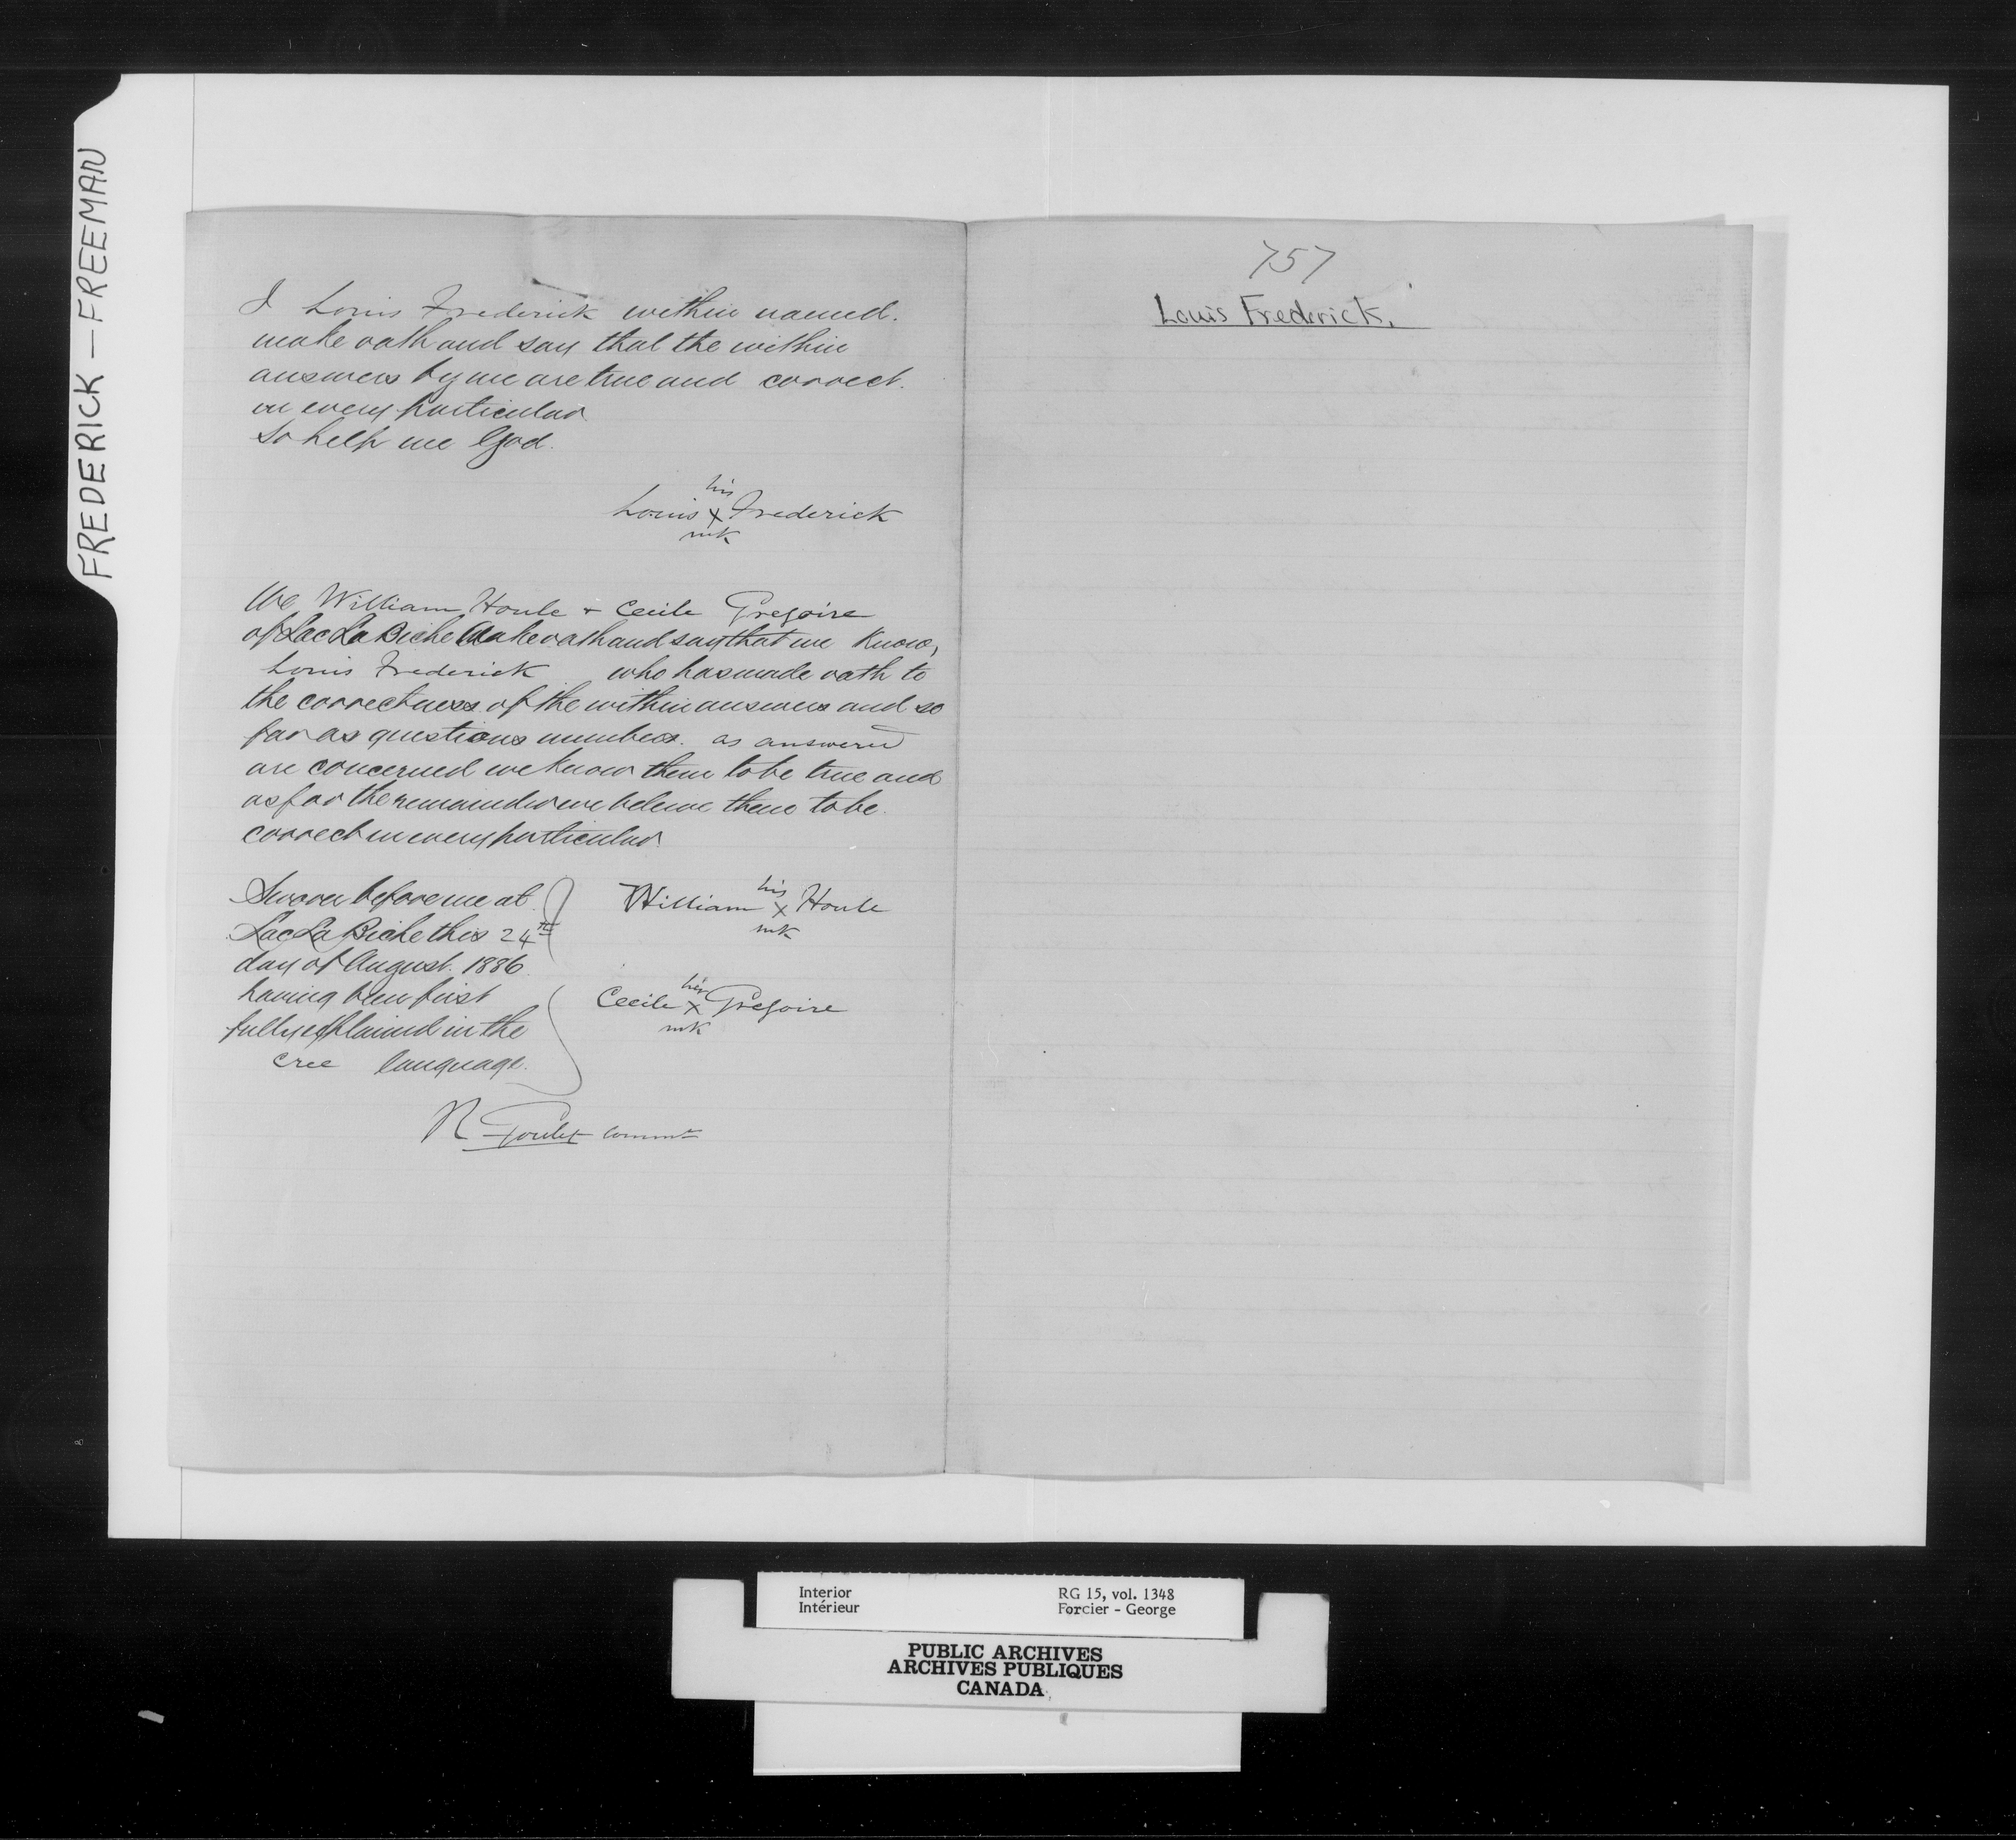 FREDERICK — FREEMAN
I Louis Frederick within named.
make oath and say that the within
answers by me are true and correct.
in every particular
So help me God.
his
Louis x Frederick
mk
We William Houle + Cecile Gregoire
of Lac La Biche Make oath and say that we Know,
Louis Frederick who has made oath to
the correctness of the within answers and so
far as questions numbers. as answered
are concerned we know them to be true and
as for the remainder we believe them to be.
correct in every particular
Sworn before me at
Lac La Biche this 24th
day of August. 1886
having been first
fully explained in the
Cree language.
his
William x Houle
mk
her
Cecile x Gregoire
mk
R Goulet Commr
757
Louis Frederick.
Interior
Intérieur
RG 15, vol. 1348
Forcier - George
PUBLIC ARCHIVES
ARCHIVES PUBLIQUES
CANADA